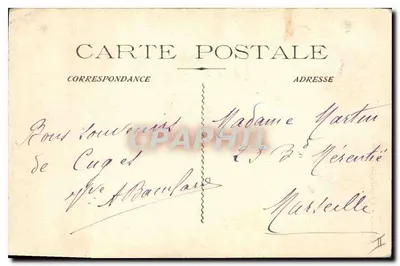 CARTE POSTALE
CORRESPONDANCE
ADRESSE
Bons souvenirs
de Cuges
Madame Martin
23 Bd Mérentié
Marseille
CPAPHIL
II